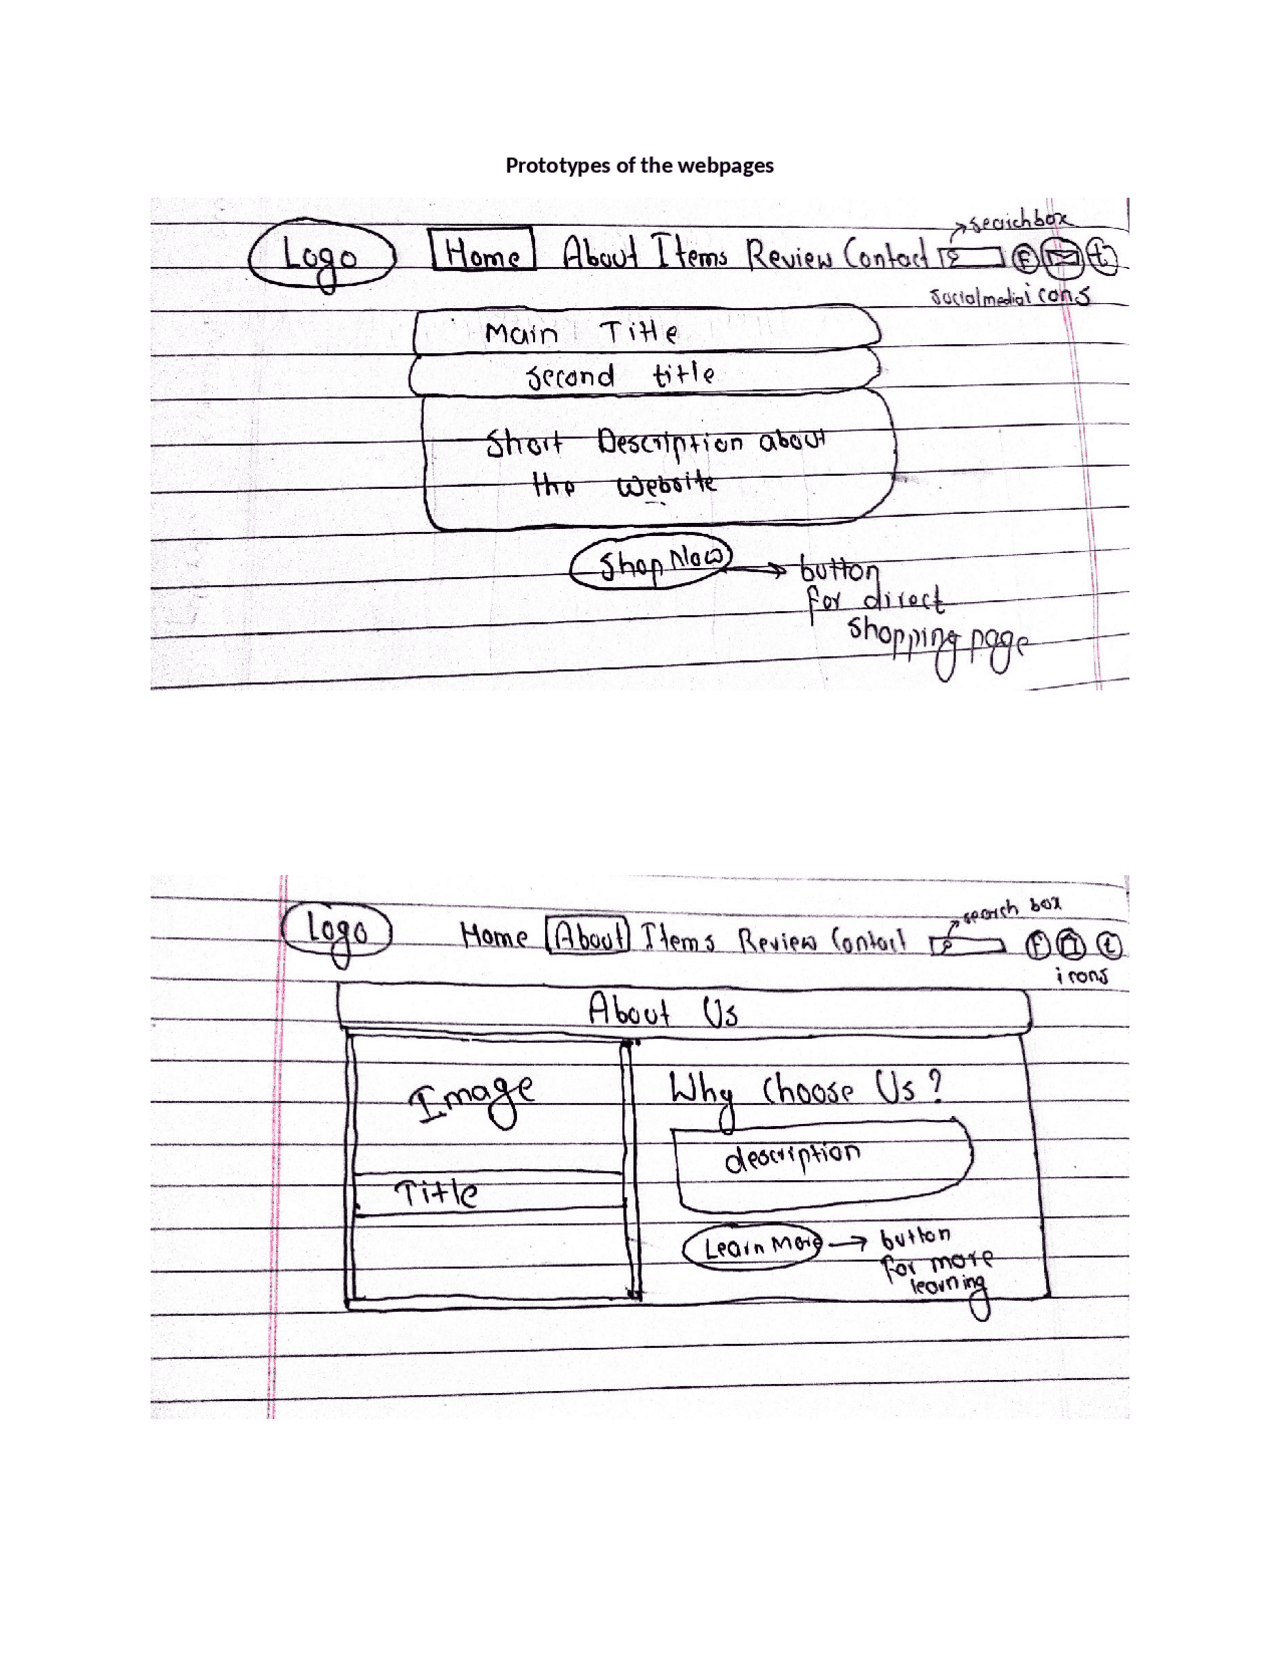 Prototypes of the webpages
searchbox
Logo Home About Items Review Contact F t
socialmedia icons
Main Title
second title
Short Description about
the website
Shop Now button
for direct
shopping page
search box
Logo Home About Items Review Contact F t
icons
About Us
Image Why Choose Us?
description
Title
Learn More button
for more
learning